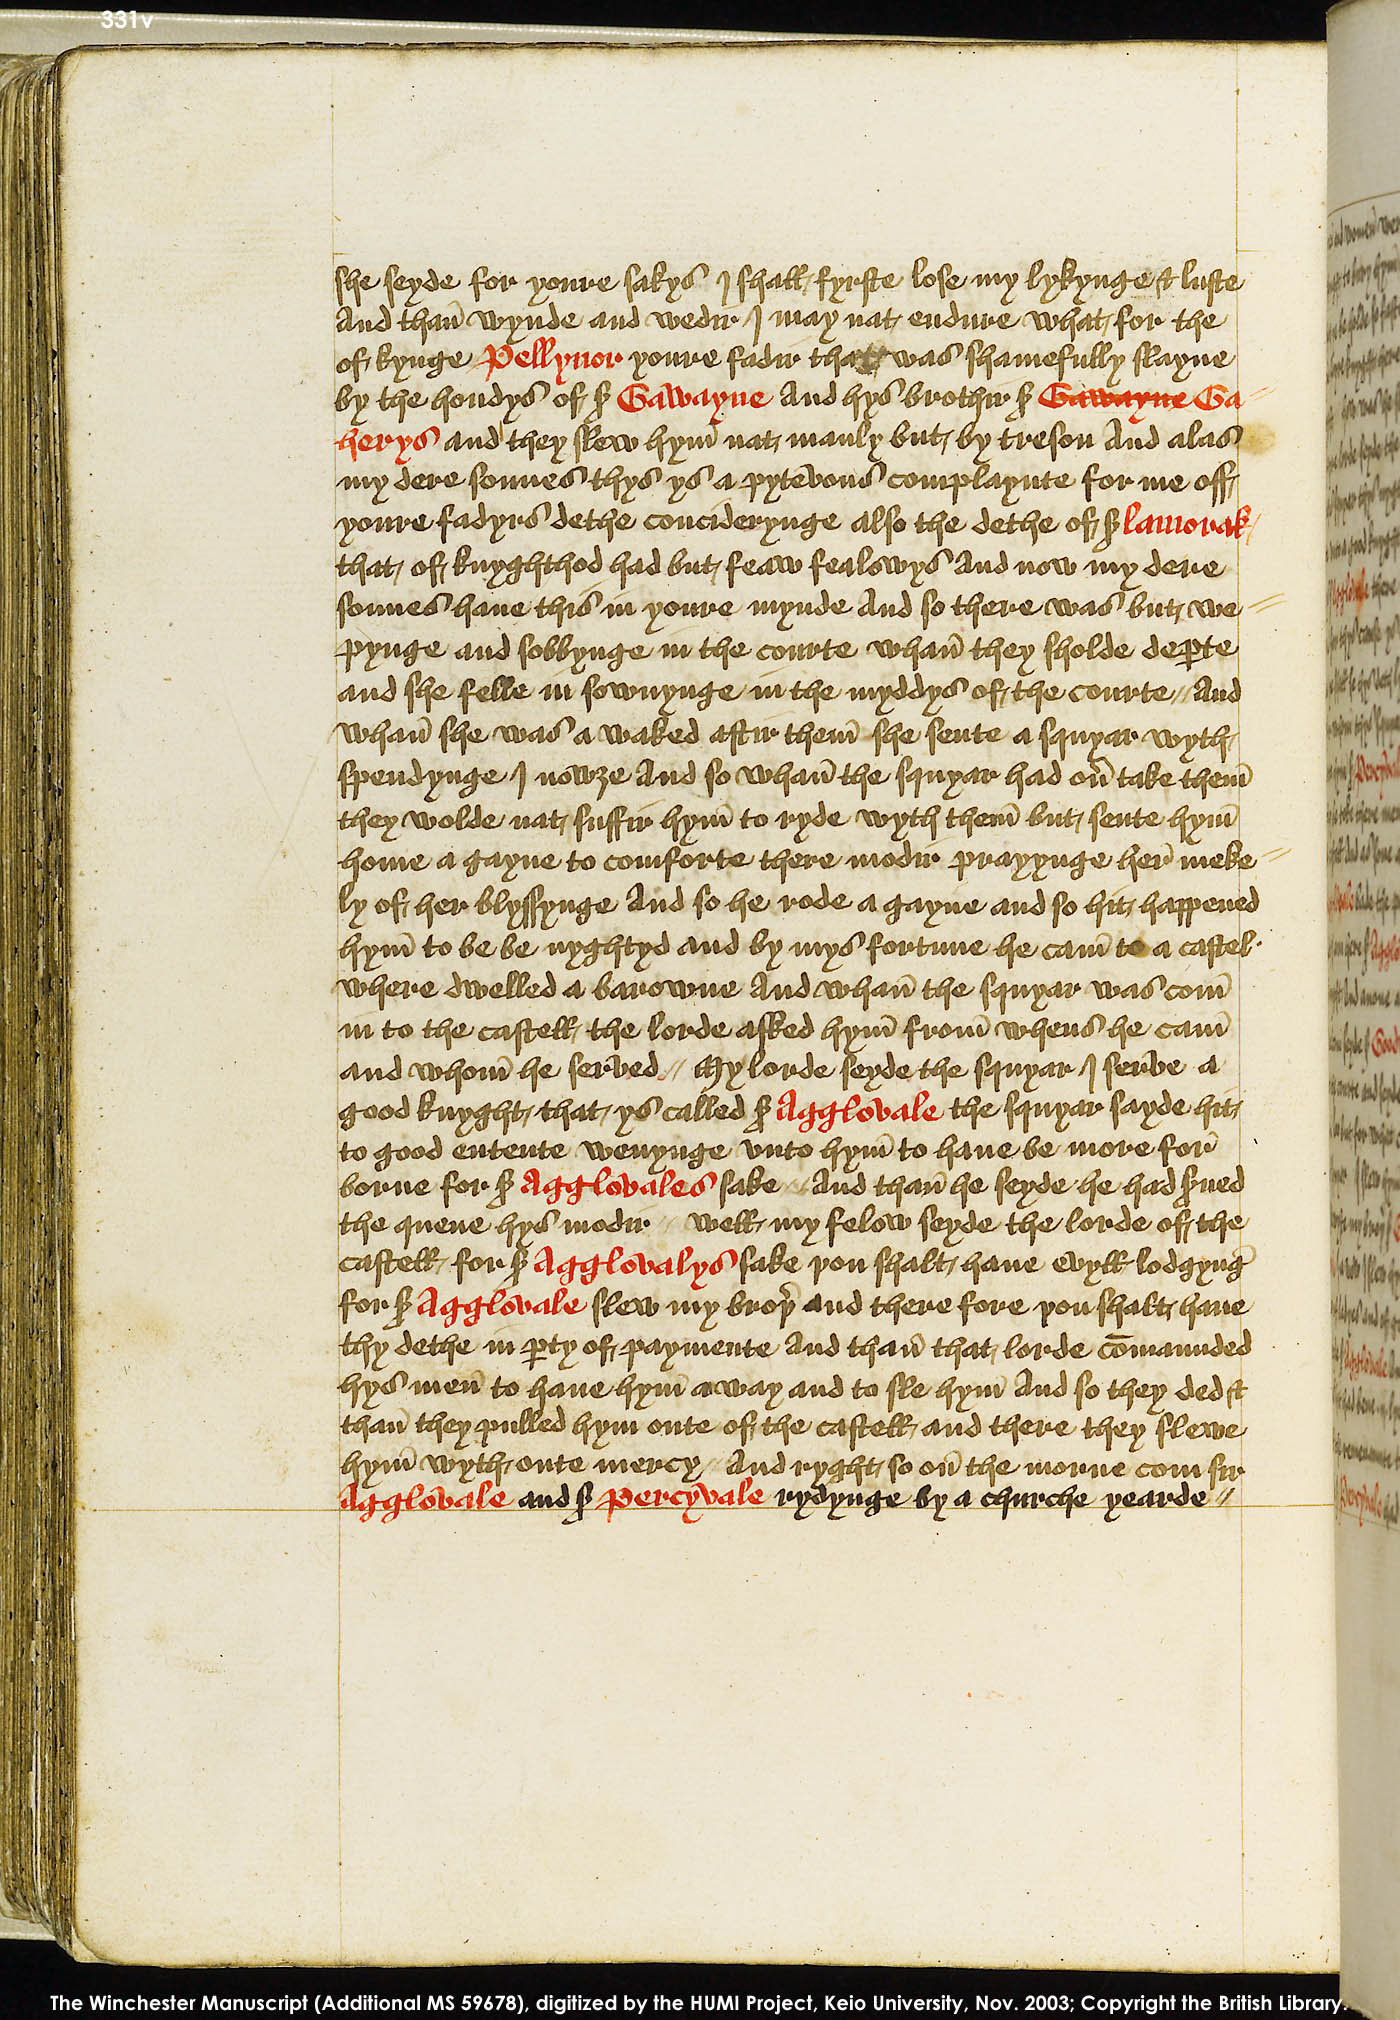 331v
she seyde for youre sakys I shall fyrste lose my lykynge & luste
And than̄ wynde and wedir I may nat endure what for the
of kynge Pellynor youre fadir that was shamefully slayne
by the hondys of sʳ Gawayne And hys brothir sʳ Gawayne Ga=
herys and they slew hym̄ nat manly but by treson And alas
my dere sonnes thys ys a pytevous complaynte for me off
youre fadyrs dethe conciderynge also the dethe of sʳ lamorak
that of knyghthod had but feaw fealowys And now my dere
sonnes haue this in youre mynde And so there was but we=
pynge and sobbynge in the courte whan̄ they sholde deꝑte
and she felle in sownynge in the myddys of the courte // And
whan̄ she was a waked aftir them̄ she sente a squyar wyth
spendynge I nowȝe And so whan̄ the squyar had oū take them̄
they wolde nat suffir hym̄ to ryde wyth them̄ but sente hym̄
home a gayne to comforte there modir prayynge her̄ meke=
ly of her blyssynge And so he rode a gayne and so hit happened
hym̄ to be be nyghtyd and by mys fortune he cam̄ to a castel
where dwelled a barowne And whan̄ the squyar was com̄
in to the castell the lorde asked hym̄ from̄ whens he cam̄
and whom̄ he served // My lorde seyde the squyar I serve a
good knyght that ys called sʳ Agglovale the squyar sayde hit
to good entente wenynge vnto hym̄ to haue be more for̄
borne for sʳ Agglovales sake // And than̄ he seyde he had sʳued
the quene hys modir // well my felow seyde the lorde of the
castell for sʳ Agglovalys sake þou shalt haue evyll lodgynḡ
for sʳ Agglovale slew my broþʳ and there fore þou shalt haue
thy dethe in ꝑty of paymente And than̄ that lorde com̄aunded
hys men̄ to haue hym̄ away and to sle hym̄ And so they ded &
than̄ they pulled hym oute of the castell and there they slewe
hym̄ wyth oute mercy // And ryght so on̄ the morne com sir
Agglovale and sʳ Percyvale rydynge by a churche yearde //
The Winchester Manuscript (Additional MS 59678), digitized by the HUMI Project, Keio University, Nov. 2003; Copyright the British Library.